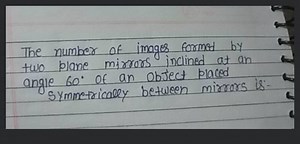 The number of images formed by
two plane mirrors inclined at an
angle 60° of an object placed
Symmetrically between mirrors is:-